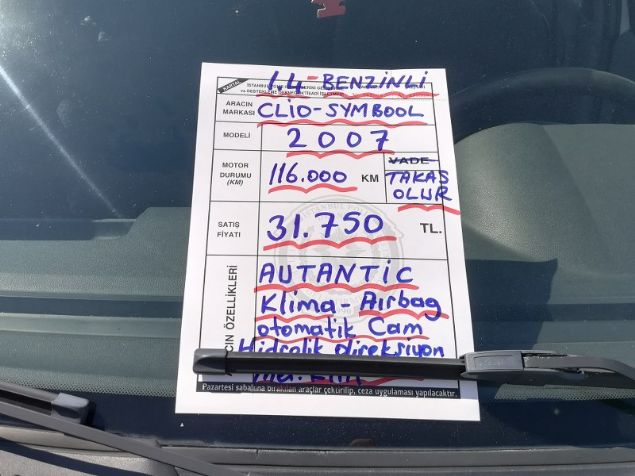 1.4-BENZİNLİ
ARACIN MARKASI CLİO-SYMBOOL
MODELİ 2007
MOTOR DURUMU (KM) 116.000 KM
VADE TAKAS OLUR
SATIŞ FİYATI 31.750 TL.
CİN ÖZELLİKLERİ
AUTANTİC
Klima-Airbag
otomatik Cam
Hidrolik direksiyon
Pazartesi sabahına bırakılan araçlar çektirilip, ceza uygulaması yapılacaktır.